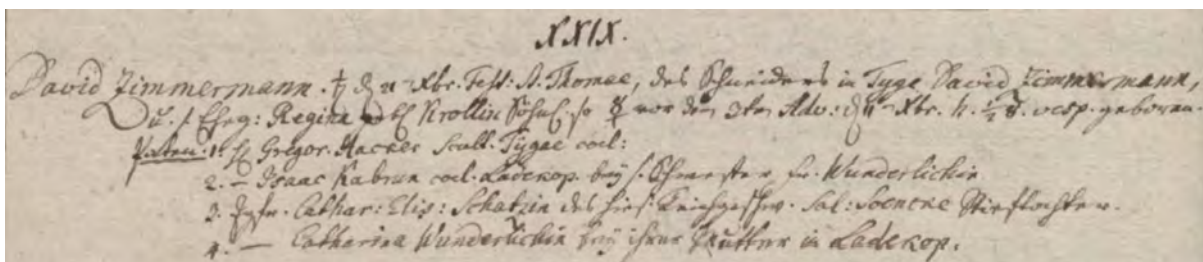 XXIX.
David Zimmermann. ♄ d 21 Xbr. Fest: St. Thomae, des Schneiders in Tyge David Zimmermann,
u. s. Eheg: Regina geb Krollin Söhnl. so ☿ vor dem 3ten Adv: d 11 Xbr. h. ½ 8. vesp. geboren
Paten. 1. H Gregor. Hacker Scult. Tygae coel:
2. — Isaac Kabrun coel. Ladekop. bey s. Schwester Fr. Wunderlichin
3. Jgfr. Cathar: Elis: Schatzin des hies. Kirchgeschw. Sal: Soencke Stieftochter.
4. — Catharina Wunderlichin bey ihrer Mutter in Ladekop.